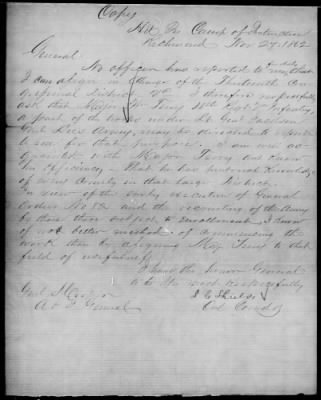 Copy
Hd Qrs Camp of Instruction
Richmond Nov 27. 1862
General
No officer has reported to me, that
I can assign in charge of the Thirteenth Con-
gressional District Va. I therefore respectfully
ask that Major W. Terry Regt Va Infantry
a part of the under Lt. Genl Jackson
Genl Lee's Army, may be to report
to me for that purpose. I am well ac-
quainted with Major Terry and know
his efficiency, & that he has personal knowledge
of every County in that large District.
In view of the early execution of General
Orders No 82 and the recruiting of the Army
by those then subject to Enrollment, I know
of no better method of commencing the
work than by assigning Maj Terry to that
field of usefulness
I have the honor General
to be most respectfully
Genl S. Cooper
J C Shields
A & I General
Col Comdg